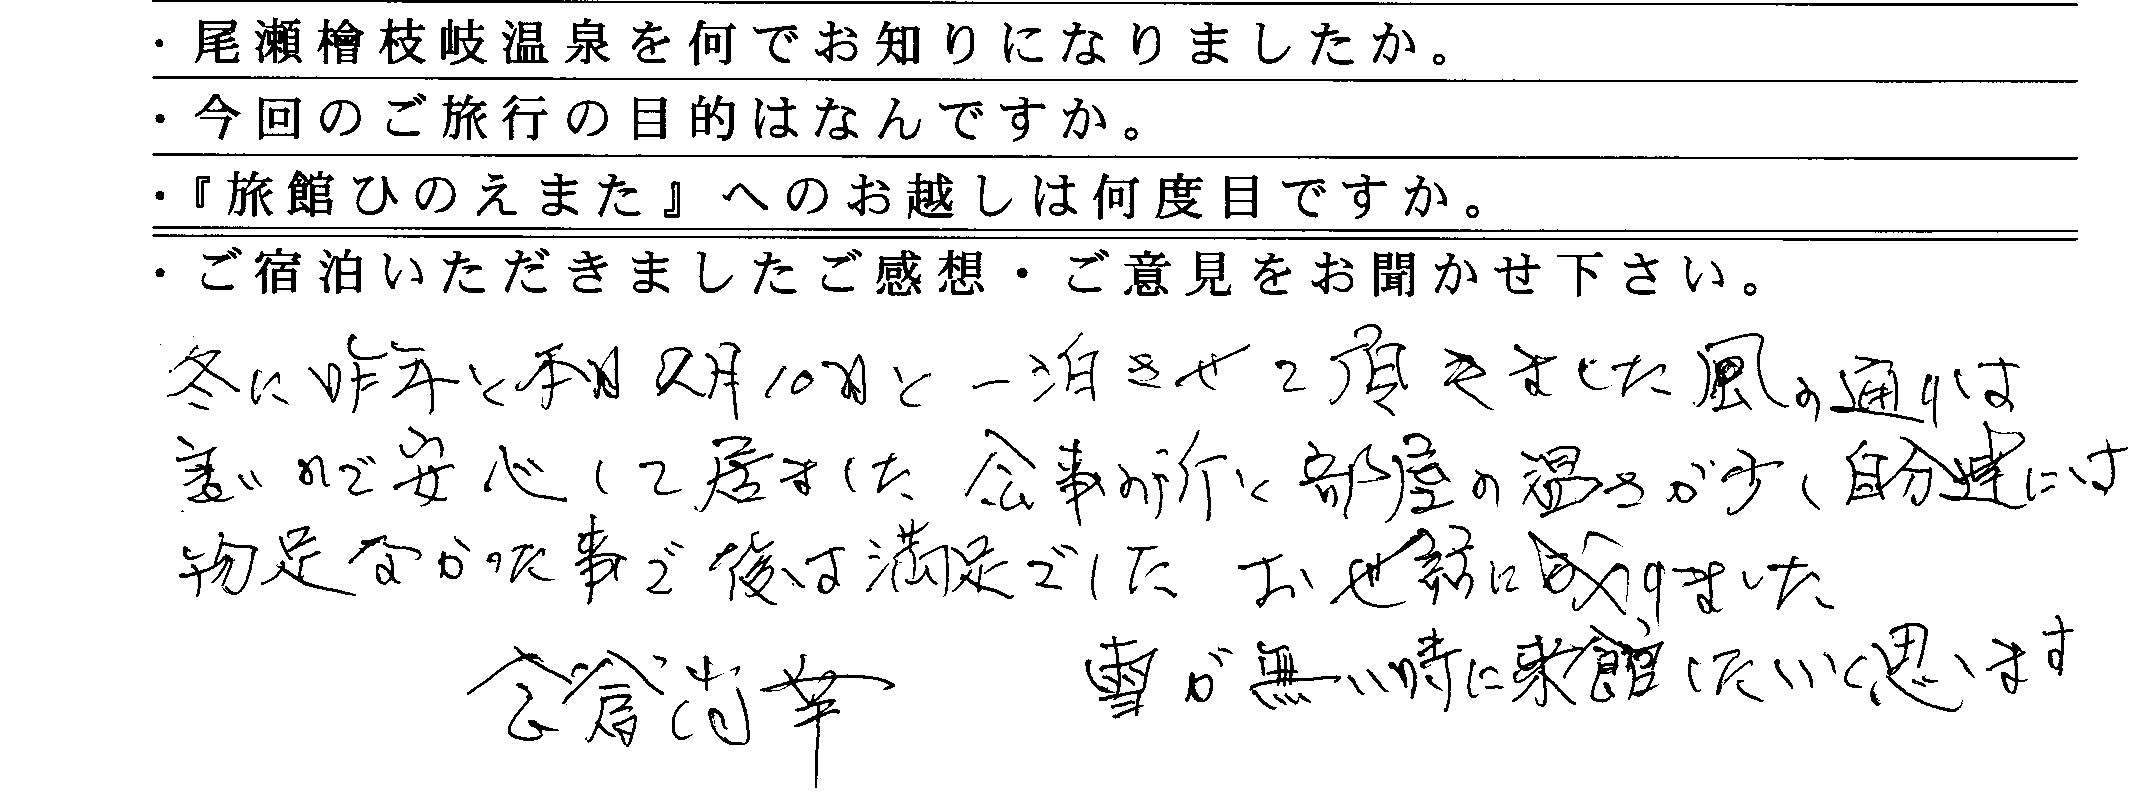 ・尾瀬檜枝岐温泉を何でお知りになりましたか。
・今回のご旅行の目的はなんですか。
・『旅館ひのえまた』へのお越しは何度目ですか。
・ご宿泊いただきましたご感想・ご意見をお聞かせ下さい。
冬に昨年と 2月10日と一泊させて頂きました風の通りは
で安心して居ました 事の所と部屋の温さが少く自分達には
物足なかった事で後は満足でした お世話に成りました
雪が無い時に来館したいと思います